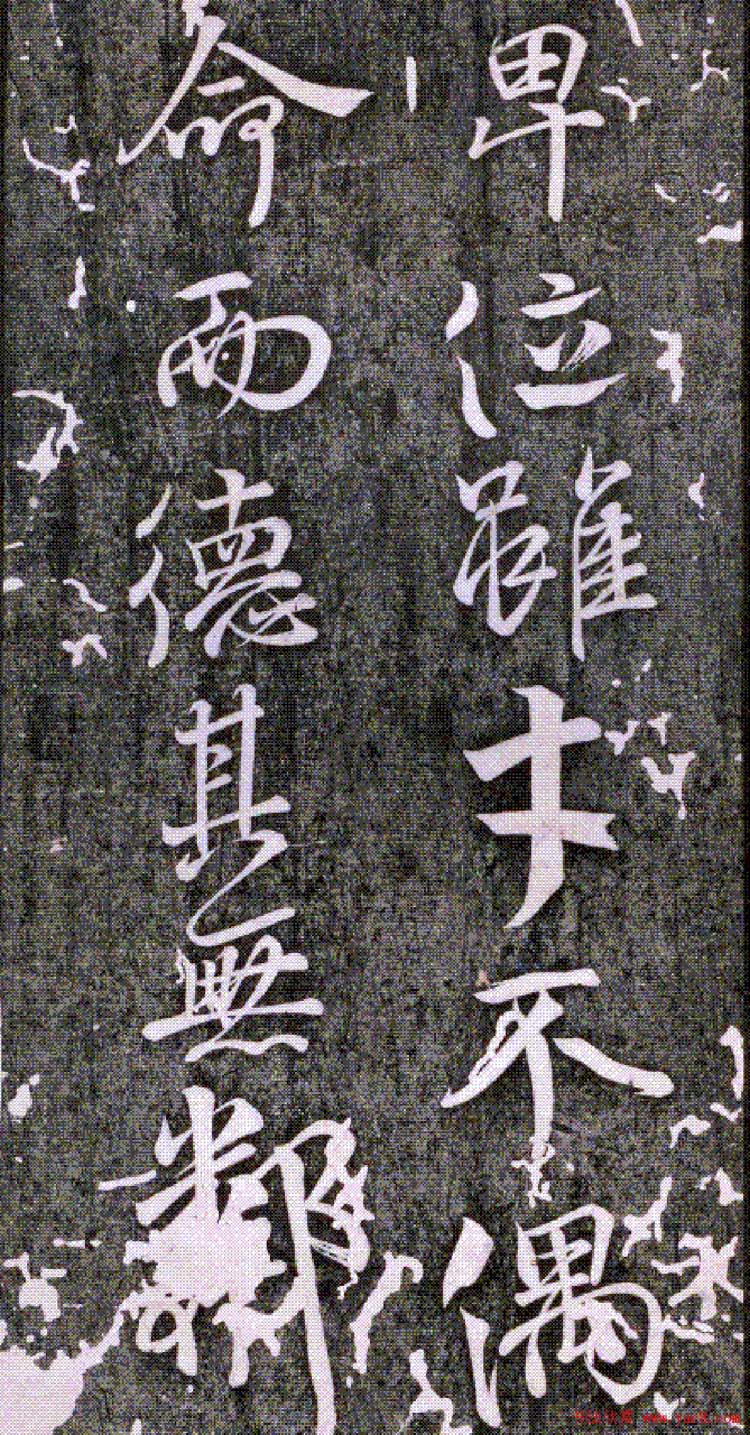 卑位雖才不偶
命而德其無鄰